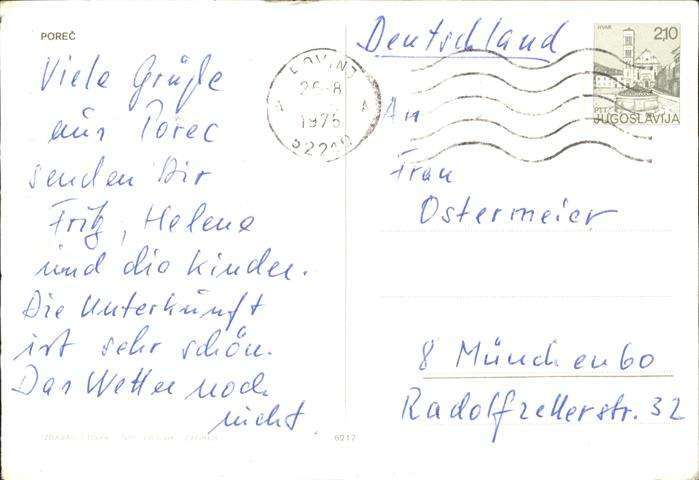 POREČ
Viele Grüße
aus Porec
senden Dir
Fritz, Helene
und die Kinder.
Die Unterkunft
ist sehr schön.
Das Wetter noch
nicht
6217
Deutschland
ROVINJ
26-8
1975
52210
HVAR
2,10
PTT
JUGOSLAVIJA
An
Frau
Ostermeier
8 München 60
Radolfzellerstr. 32